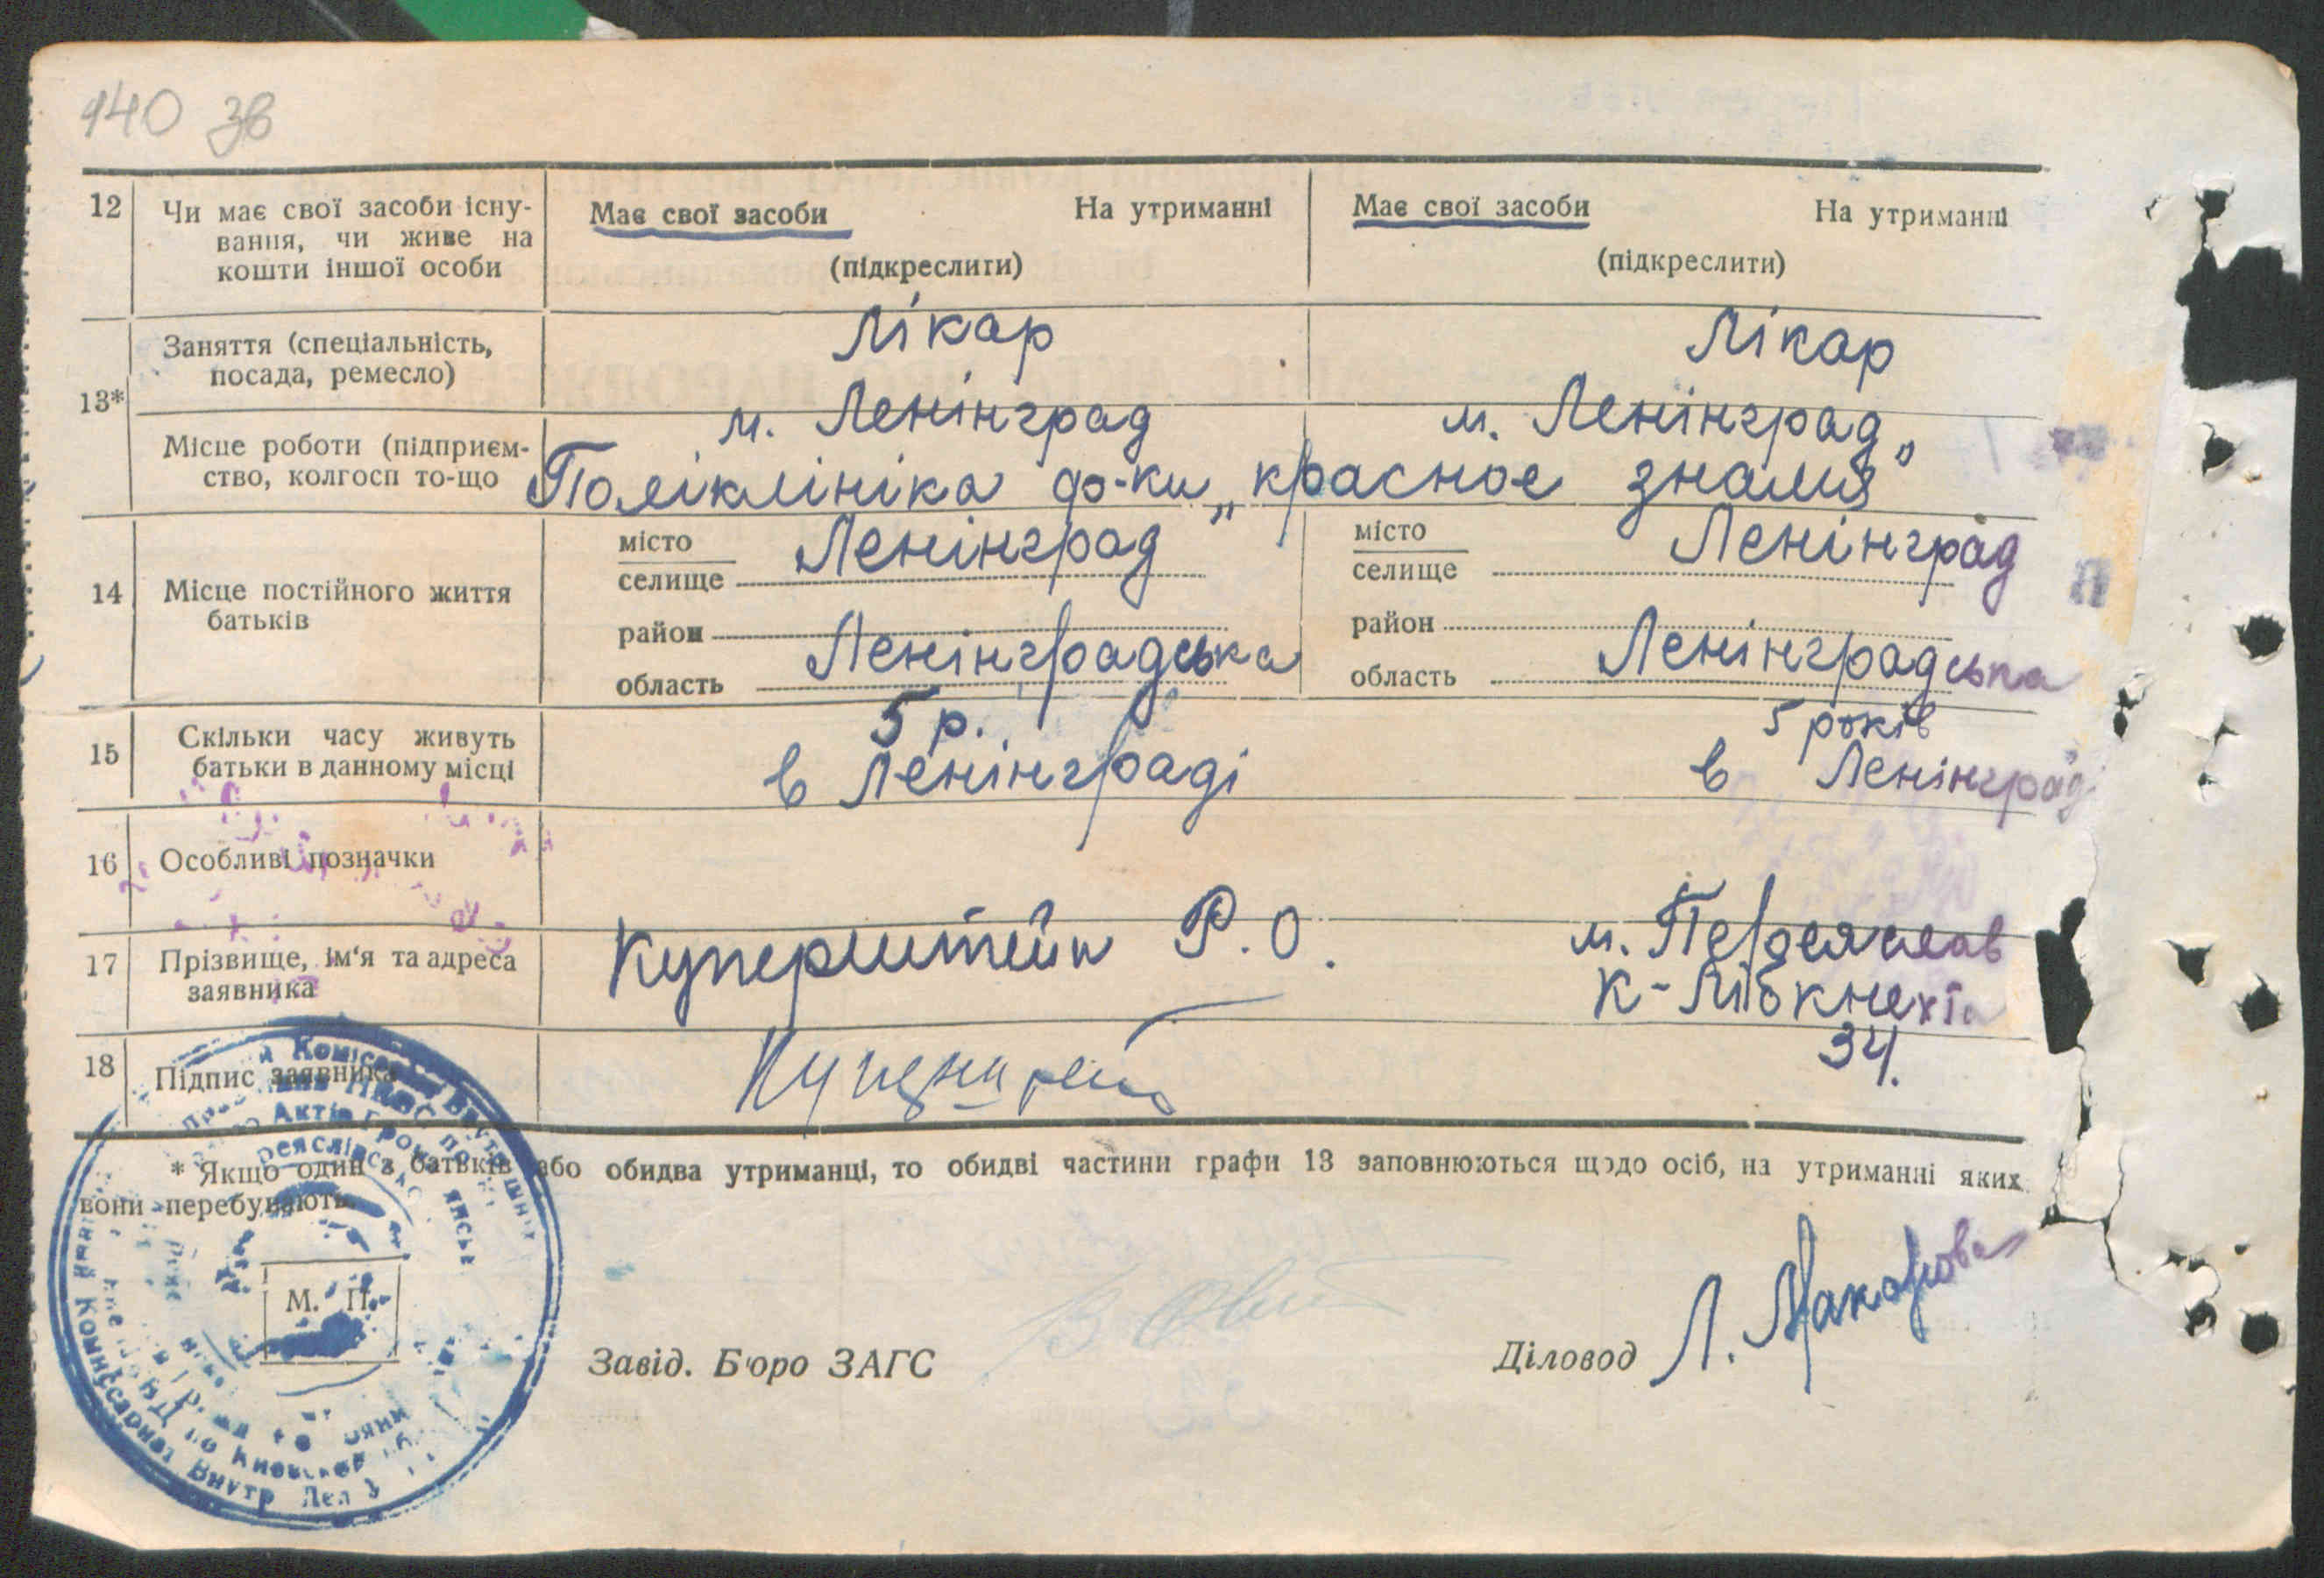 140 зв
12 Чи має свої засоби існу- Має свої засоби На утриманні Має свої засоби На утриманні
вання, чи живе на
кошти іншої особи (підкреслити) (підкреслити)
13* Заняття (спеціальність, Лікар Лікар
посада, ремесло)
м. Ленінград м. Ленінград
Місце роботи (підприєм-
ство, колгосп то-що Поліклініка ф-ки „красное знамя"
14 Місце постійного життя місто Ленінград місто Ленінград
батьків селище селище
район район
область Ленінградська область Ленінградська
15 Скільки часу живуть 5 р. 5 років
батьки в данному місці в Ленінграді в Ленінграді
16 Особливі позначки
17 Прізвище, ім'я та адреса Куперштейн Р. О. м. Переяслав
заявника К-Лібкнехта
34.
18 Підпис заявника Куперштейн
* Якщо один з батьків або обидва утриманці, то обидві частини графи 13 заповнюються щодо осіб, на утриманні яких
вони перебувають.
М. П.
Завід. Бюро ЗАГС Діловод Л. Макарова